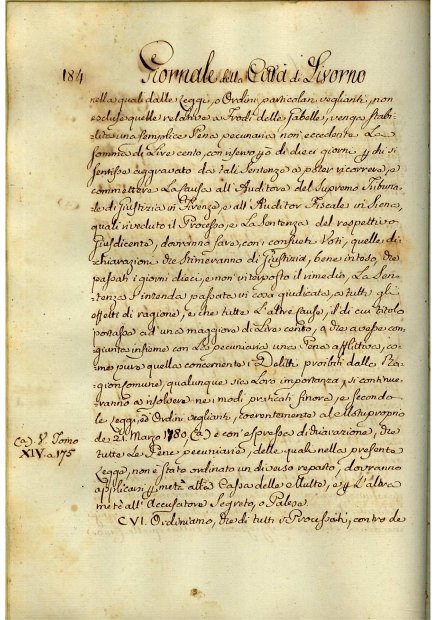 184
Giornale della Città di Livorno
nella quali dalle Leggi, o Ordini particolari veglianti, non
escluse quelle relative a Frodi delle Gabelle, venga stabi-
lita una semplice Pena pecuniaria non eccedente La
somma di Lire cento, con riservo però di dieci giorni a chi si
sentisse aggravato da tali Sentenze a poter ricorrere, e
commettere La Causa all' Auditore del Supremo Tribuna-
le di Giustizia in Firenze, e all' Auditor Fiscale in Siena,
quali riveduto il Processo, e La Sentenza del respettivo
Giusdicente, dovranno fare, con i consueti Voti, quelle di-
chiarazioni che Stimeranno di Giustizia, bene inteso, che
passati i giorni dieci, e non interposto il rimedio, La Sen-
tenza S'intenda passata in cosa giudicata, a tutti gli
effetti di ragione, e che tutte L'altre Cause, il di cui titolo
portasse ad una maggiore di Lire cento, o che avesse con-
giunta insieme con La pecuniaria una Pena afflittiva, co-
me pure quelle concernenti i Delitti proibiti dalla Ra-
gion comune, qualunque sia La Loro importanza, si continue-
ranno a risolvere nei modi praticati finora, e secondo
le Leggi, ed Ordini veglianti, coerentemente al Motuproprio
de 21. Marzo 1780 (a) e con espressa dichiarazione, che
tutte Le Pene pecuniarie, delle quali nella presente
Legge, non è stato ordinato un diverso reparto, dovranno
applicarsi per metà alla Cassa delle Multe, e per L'altra
metà all' Accusatore Segreto, o Palese.
CVI. Ordiniamo, che di tutti i Processati, contro de
(a) V. Tomo
XIV. a 175